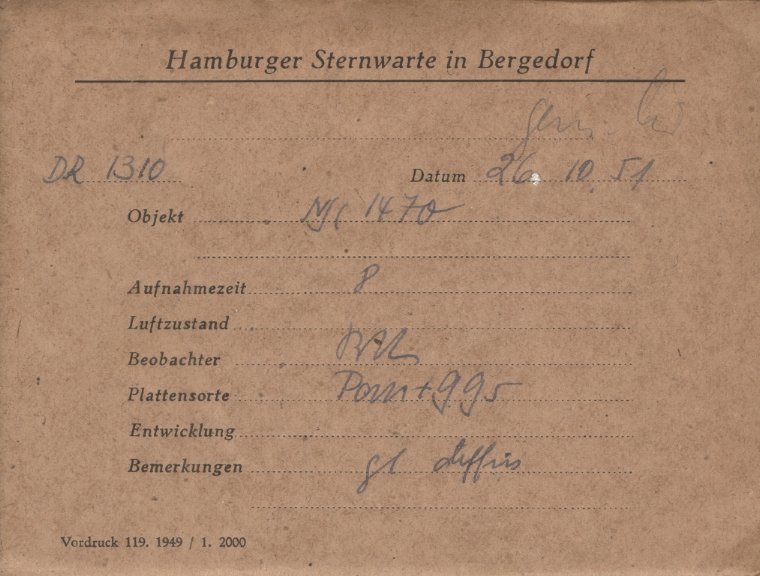 Hamburger Sternwarte in Bergedorf
DR 1310 Datum 26. 10. 51
Objekt NGC 1470
Aufnahmezeit 8
Luftzustand
Beobachter
Plattensorte Pan + 995
Entwicklung
Bemerkungen gl diffus
Vordruck 119. 1949 / 1. 2000